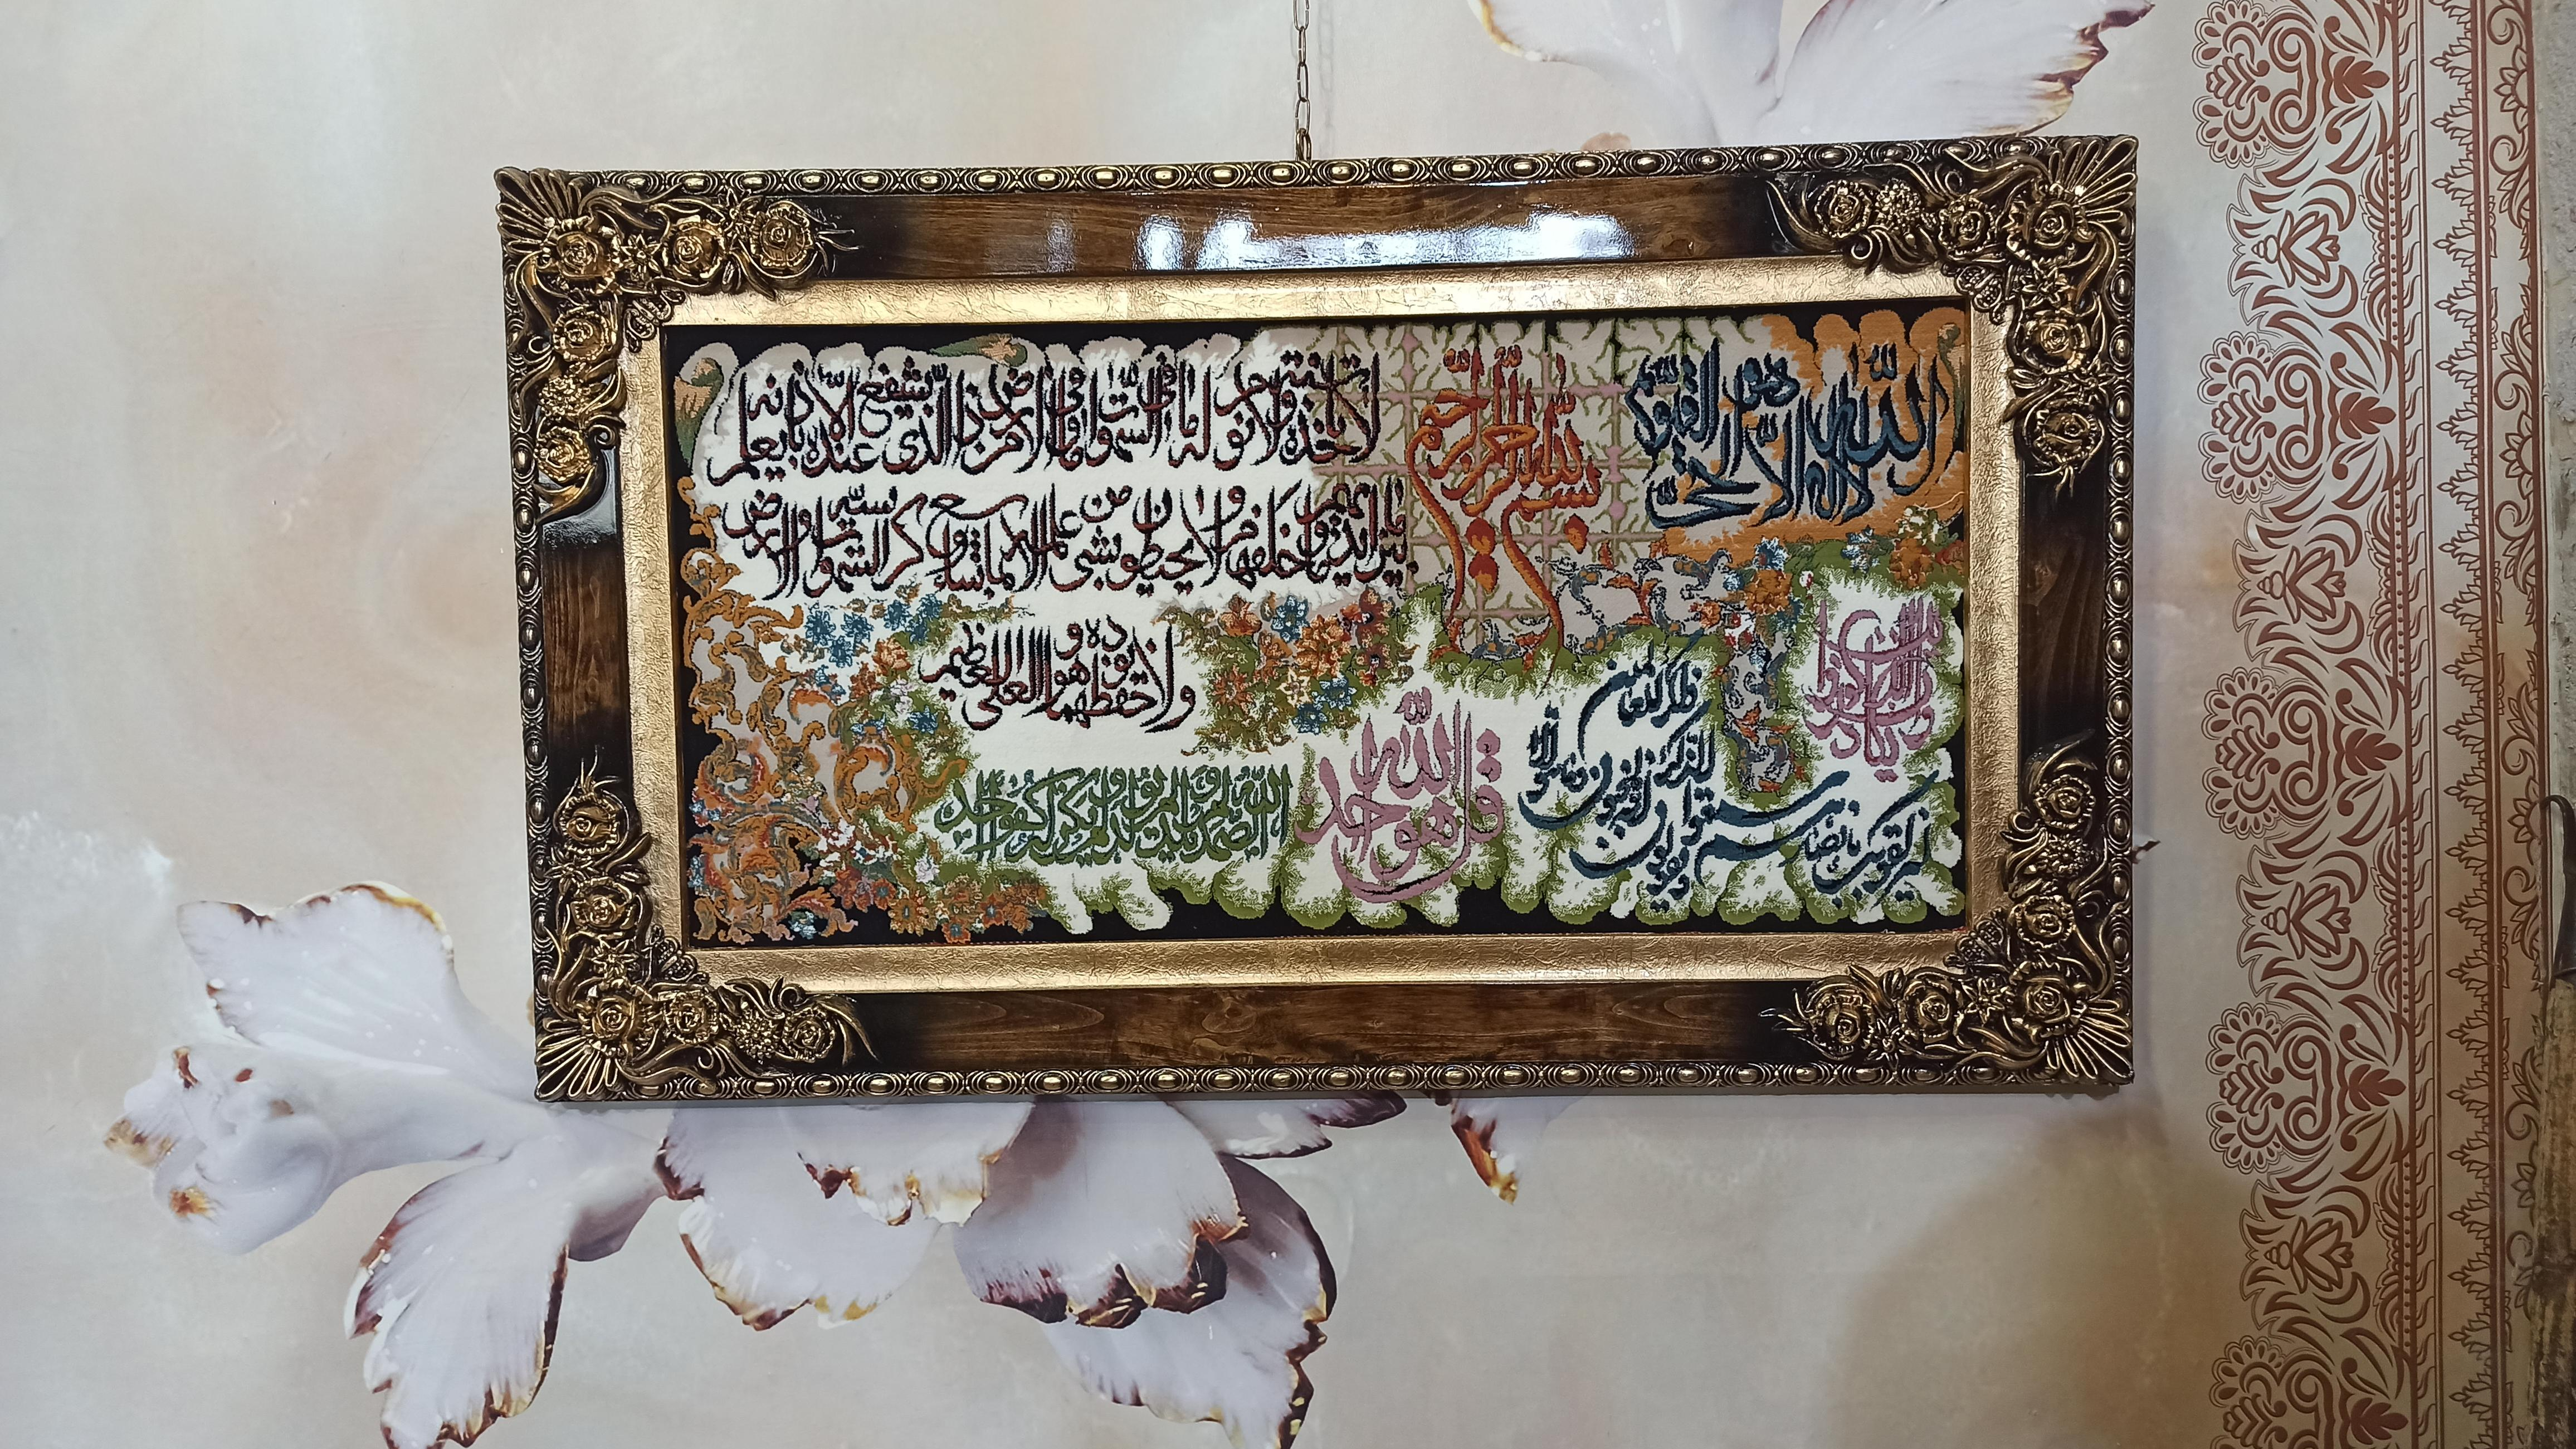 بسم الله الرحمن الرحیم
الله لا اله الا هو الحی القیوم
لا تاخذه سنة ولا نوم له ما فی السموات وما فی الارض من ذا الذی یشفع عنده الا باذنه یعلم
ما بین ایدیهم وما خلفهم ولا یحیطون بشی من علمه الا بما شاء وسع کرسیه السموات والارض
ولا یوده حفظهما وهو العلی العظیم
وان یکاد الذین کفروا
لیزلقونک بابصارهم لما سمعوا الذکر ویقولون انه لمجنون وما هو الا ذکر للعالمین
قل هو الله احد
الله الصمد لم یلد ولم یولد ولم یکن له کفوا احد